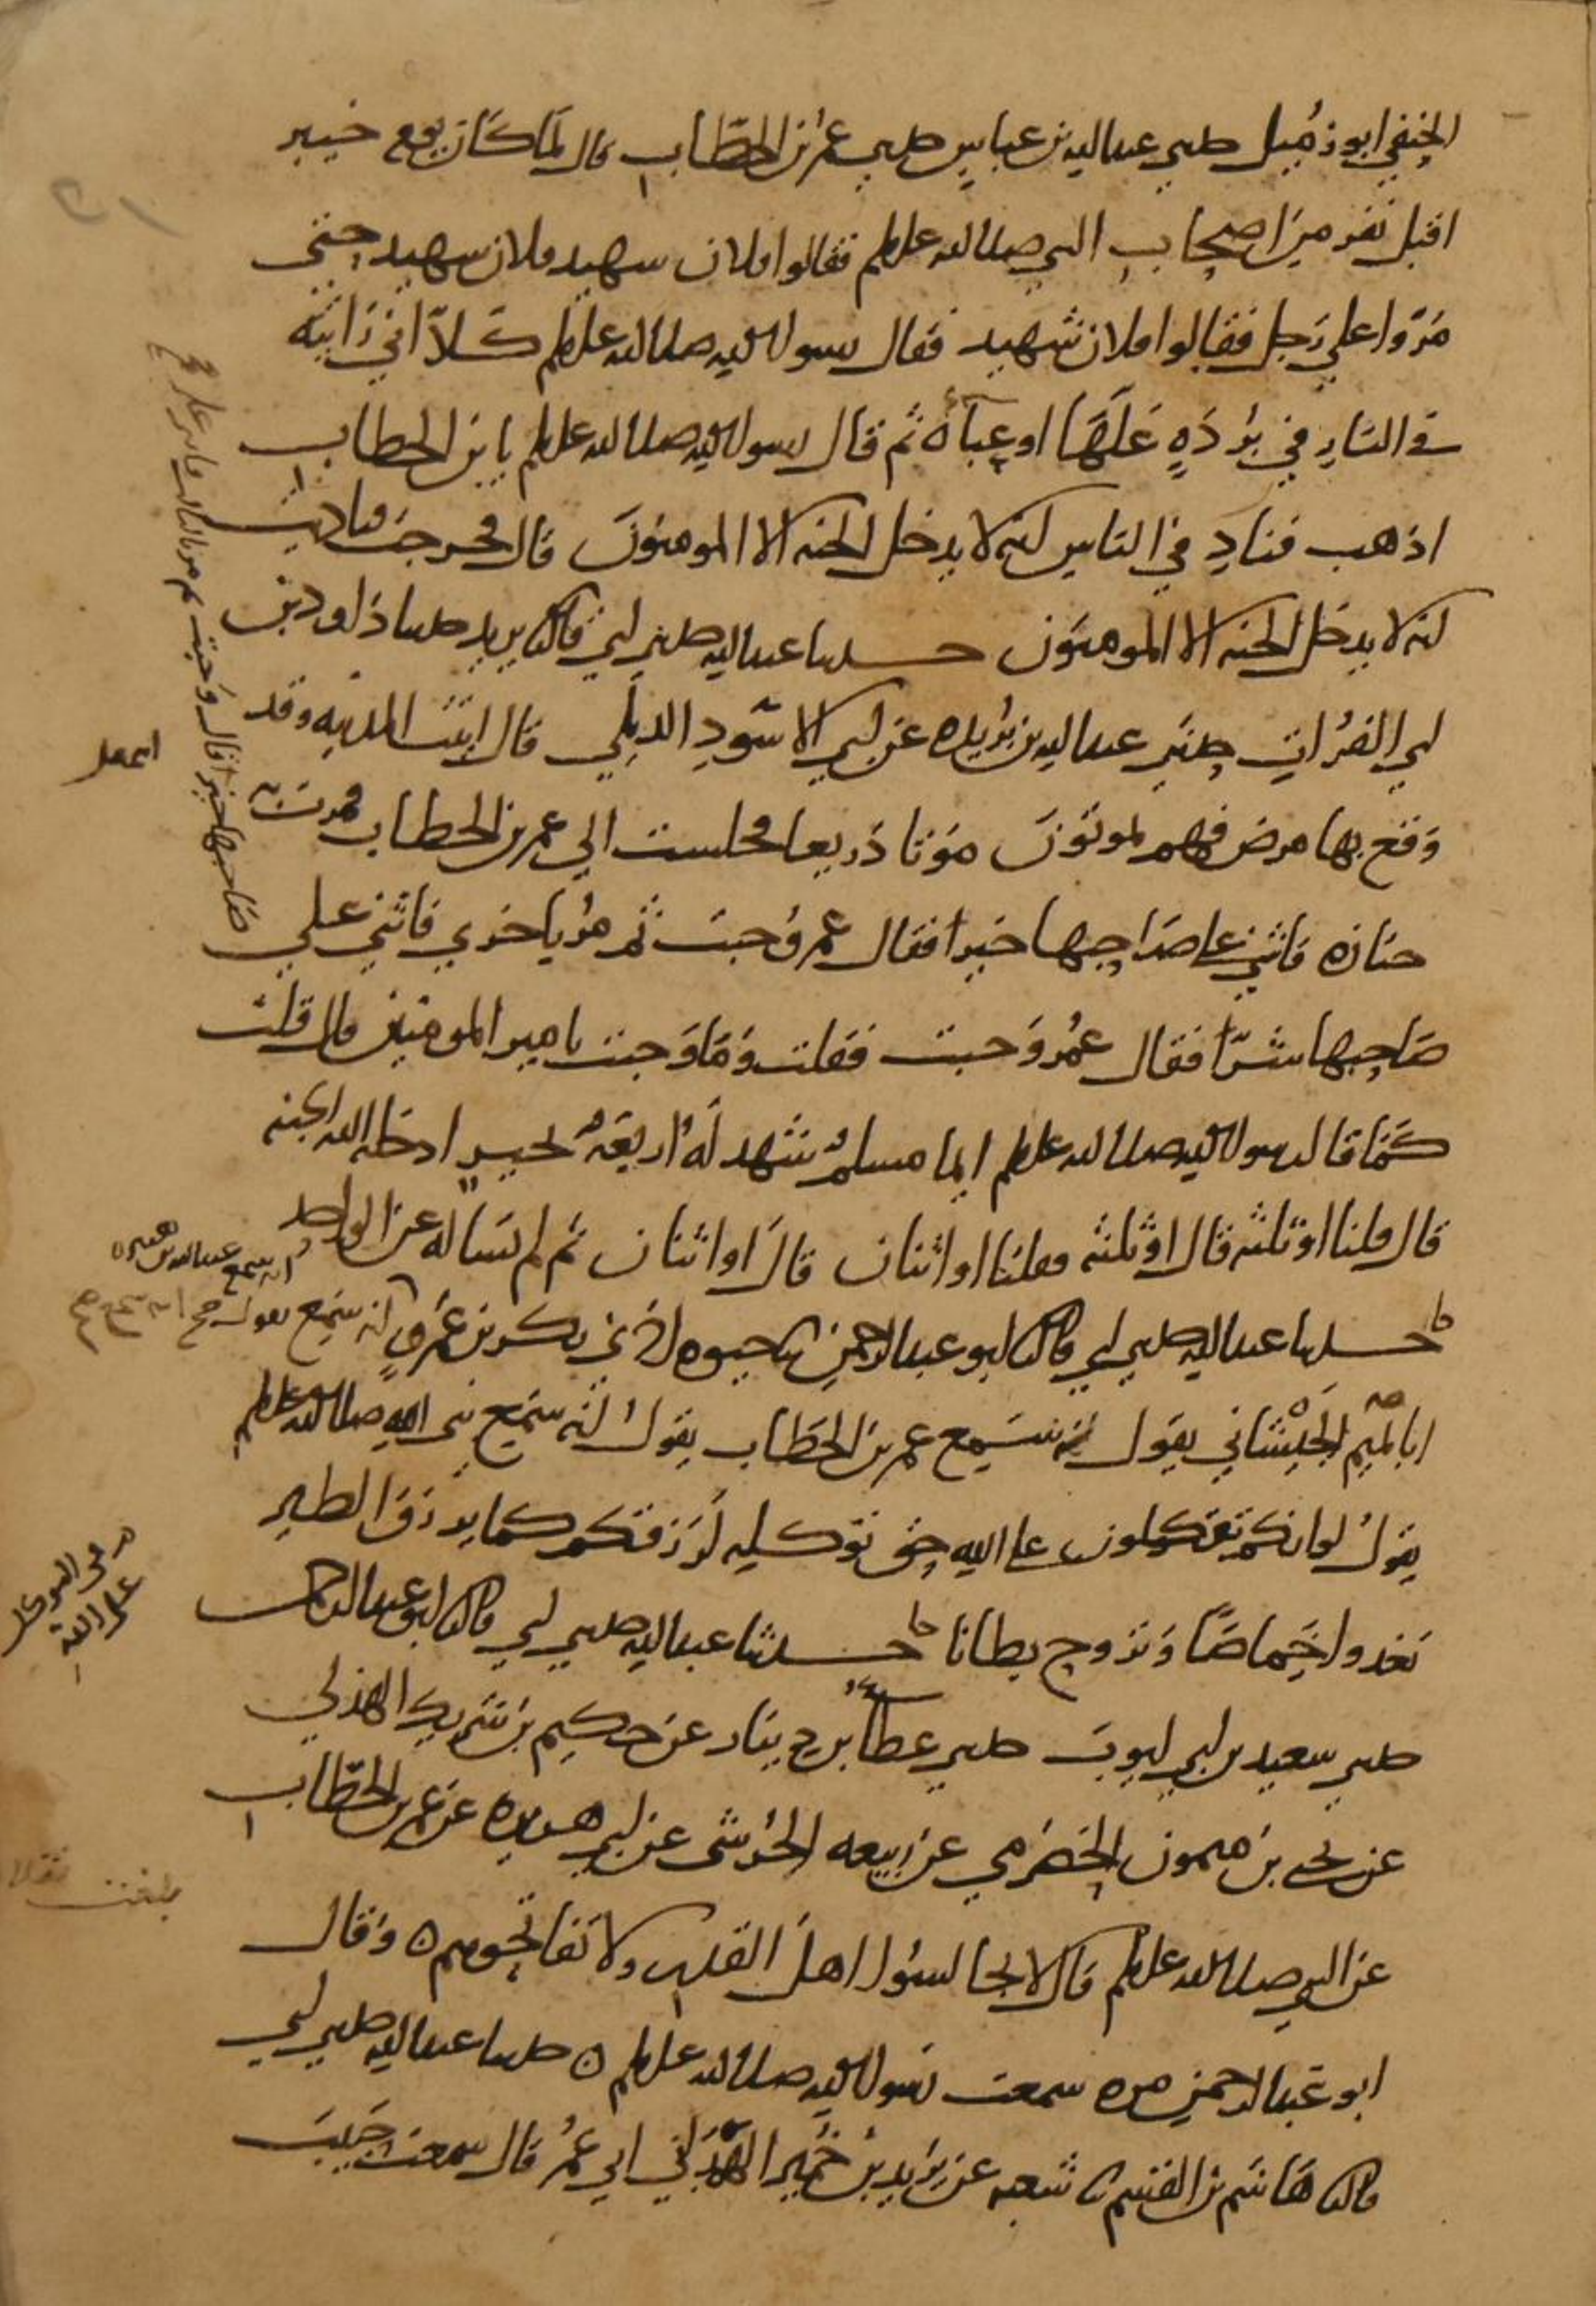 الحنفي ابو زميل حدثني عبدالله بن عباس حدثني عمر بن الخطاب قال لما كان يوم خيبر
اقبل نفر من اصحاب النبي صلى الله عليه وسلم فقالوا فلان شهيد فلان شهيد حتى
مروا على رجل فقالوا فلان شهيد فقال رسول الله صلى الله عليه وسلم كلا اني رايته
في النار في بردة غلها او عباة ثم قال رسول الله صلى الله عليه وسلم يا بن الخطاب
اذهب فناد في الناس انه لا يدخل الجنه الا المومنون قال فخرجت فناديت
انه لا يدخل الجنه الا المومنون حدثنا عبدالله حدثني ابي قال ثنا يزيد حدثنا داود بن
ابي الفرات حدثني عبدالله بن بريده عن ابي الاسود الديلي قال اتيت المدينه وقد
وقع بها مرض فهم يموتون موتا ذريعا فجلست الى عمر بن الخطاب فمرت به
جنازه فاثني على صاحبها خيرا فقال عمر وجبت ثم مر باخرى فاثني على
صاحبها شرا فقال عمر وجبت فقلت وما وجبت يا امير المومنين قال قلت
كما قال رسول الله صلى الله عليه وسلم ايما مسلم شهد له اربعة بخير ادخله الله الجنه
قال قلنا او ثلثه قال او ثلثه فقلنا او اثنان قال او اثنان ثم لم نساله عن الواحد
حدثنا عبدالله حدثني ابي قال ثنا ابو عبد الرحمن ثنا حيوه اخبرني بكر بن عمرو انه سمع
ابا تميم الجيشاني يقول انه سمع عمر بن الخطاب يقول انه سمع نبي الله صلى الله عليه وسلم
يقول لو انكم تتوكلون على الله حق توكله لرزقكم كما يرزق الطير
تغدوا خماصا وتروح بطانا حدثنا عبدالله حدثني ابي قال ثنا ابو عبد الرحمن
حدثني سعيد بن ابي ايوب حدثني عطا بن دينار عن حكيم بن شريك الهذلي
عن يحيى بن ميمون الحضرمي عن ربيعه الجرشي عن ابي هريره عن عمر بن الخطاب
عن النبي صلى الله عليه وسلم قال لا تجالسوا اهل القدر ولا تفاتحوهم وقال
ابو عبد الرحمن مره سمعت رسول الله صلى الله عليه وسلم حدثنا عبدالله حدثني ابي
قال ثنا هاشم بن القسم ثنا شعبه عن يزيد بن خمير الهمداني ابي عمر قال سمعت حبيب
صاحبها خيرا فقال وجبت ثم مر
انه سمع عبدالله بن هبيره
على الله